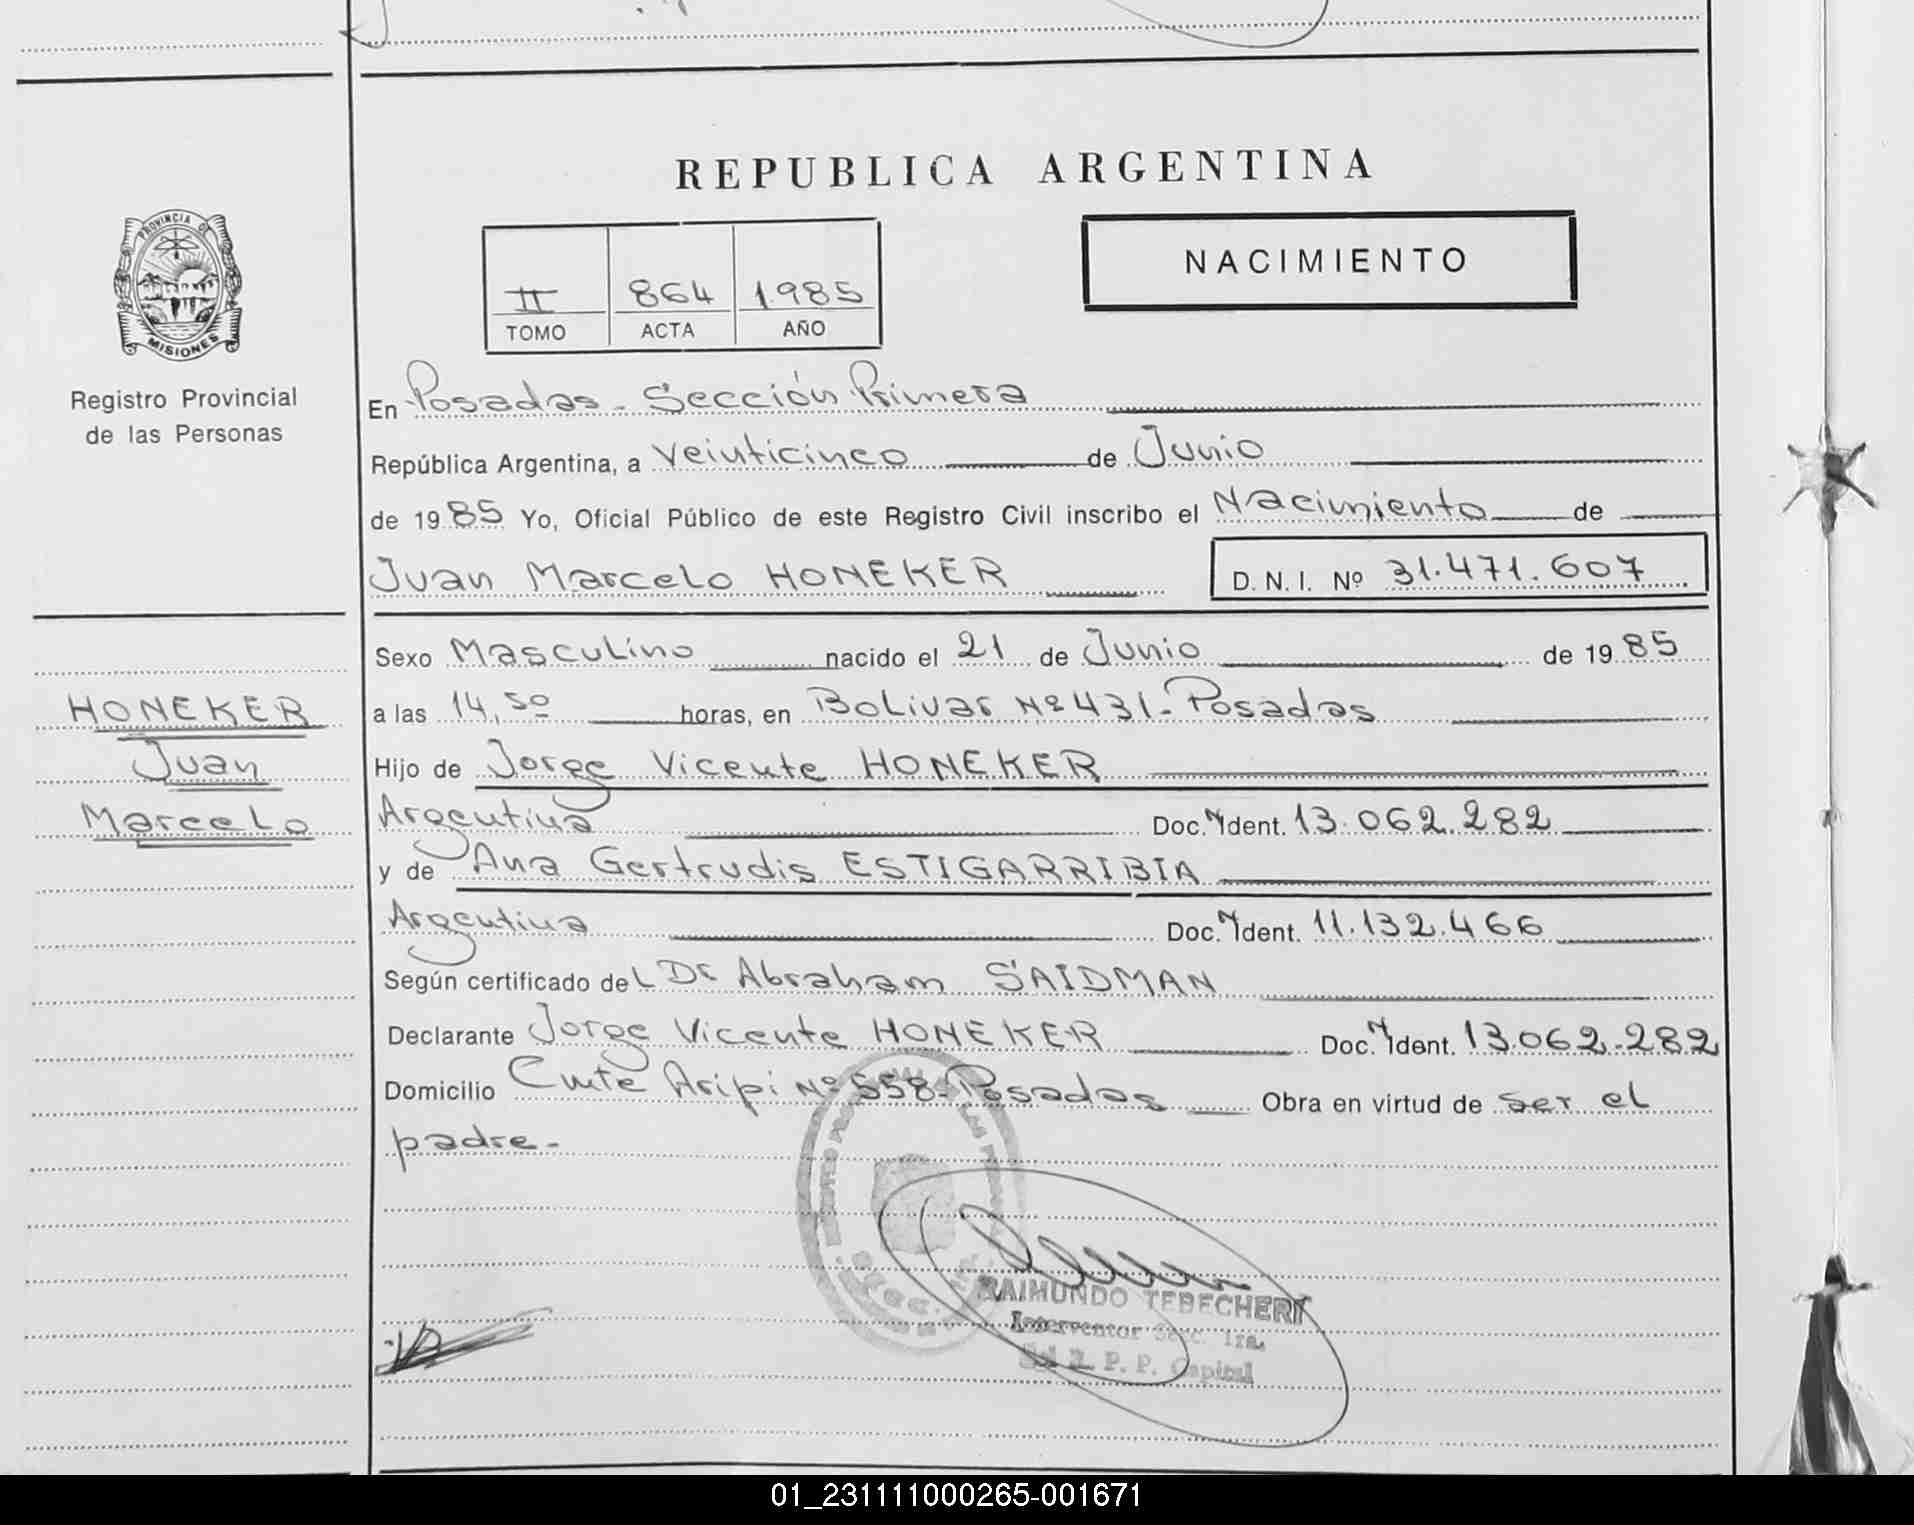 REPUBLICA ARGENTINA
PROVINCIA DE
MISIONES
Registro Provincial
de las Personas
II 864 1.985
TOMO ACTA AÑO
NACIMIENTO
En Posadas - Sección Primera
República Argentina, a Veinticinco de Junio
de 1985 Yo, Oficial Público de este Registro Civil inscribo el Nacimiento de
Juan Marcelo HONEKER D. N. I. Nº 31.471.607
Sexo Masculino nacido el 21 de Junio de 1985
a las 14,50 horas, en Bolivar Nº 431 - Posadas
Hijo de Jorge Vicente HONEKER
Argentina Doc. N Ident. 13.062.282
y de Ana Gertrudis ESTIGARRIBIA
Argentina Doc. N Ident. 11.132.466
Según certificado del Dr Abraham SAIDMAN
Declarante Jorge Vicente HONEKER Doc. N Ident. 13.062.282
Domicilio Cmte Aripi Nº 558 - Posadas Obra en virtud de ser el
padre.-
HONEKER
Juan
Marcelo
RAIMUNDO TEBECHERY
Interventor Secc. 1ra.
P. P. Capital
01_231111000265-001671